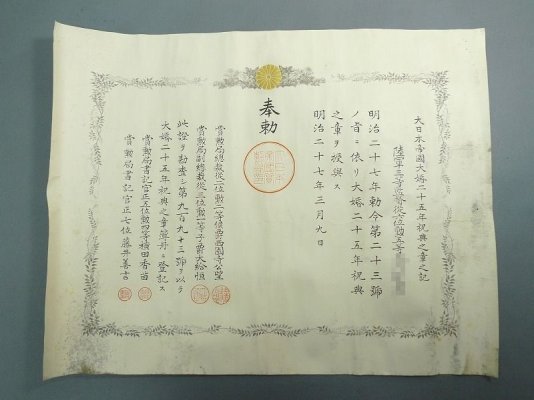 大日本帝國大婚二十五年祝典之章之記
陸軍三等監督從六位勲五等
明治二十七年勅令第二十三號
ノ旨ニ依リ大婚二十五年祝典
之章ヲ授與ス
明治二十七年三月九日
奉勅
賞勲局總裁從二位勲一等侯爵西園寺公望
賞勲局副總裁從三位勲一等子爵大給恒
此證ヲ勘査シ第九百九十三號ヲ以テ
大婚二十五年祝典之章簿册ニ登記ス
賞勲局書記官正五位勲四等横田香苗
賞勲局書記官正七位藤井善言